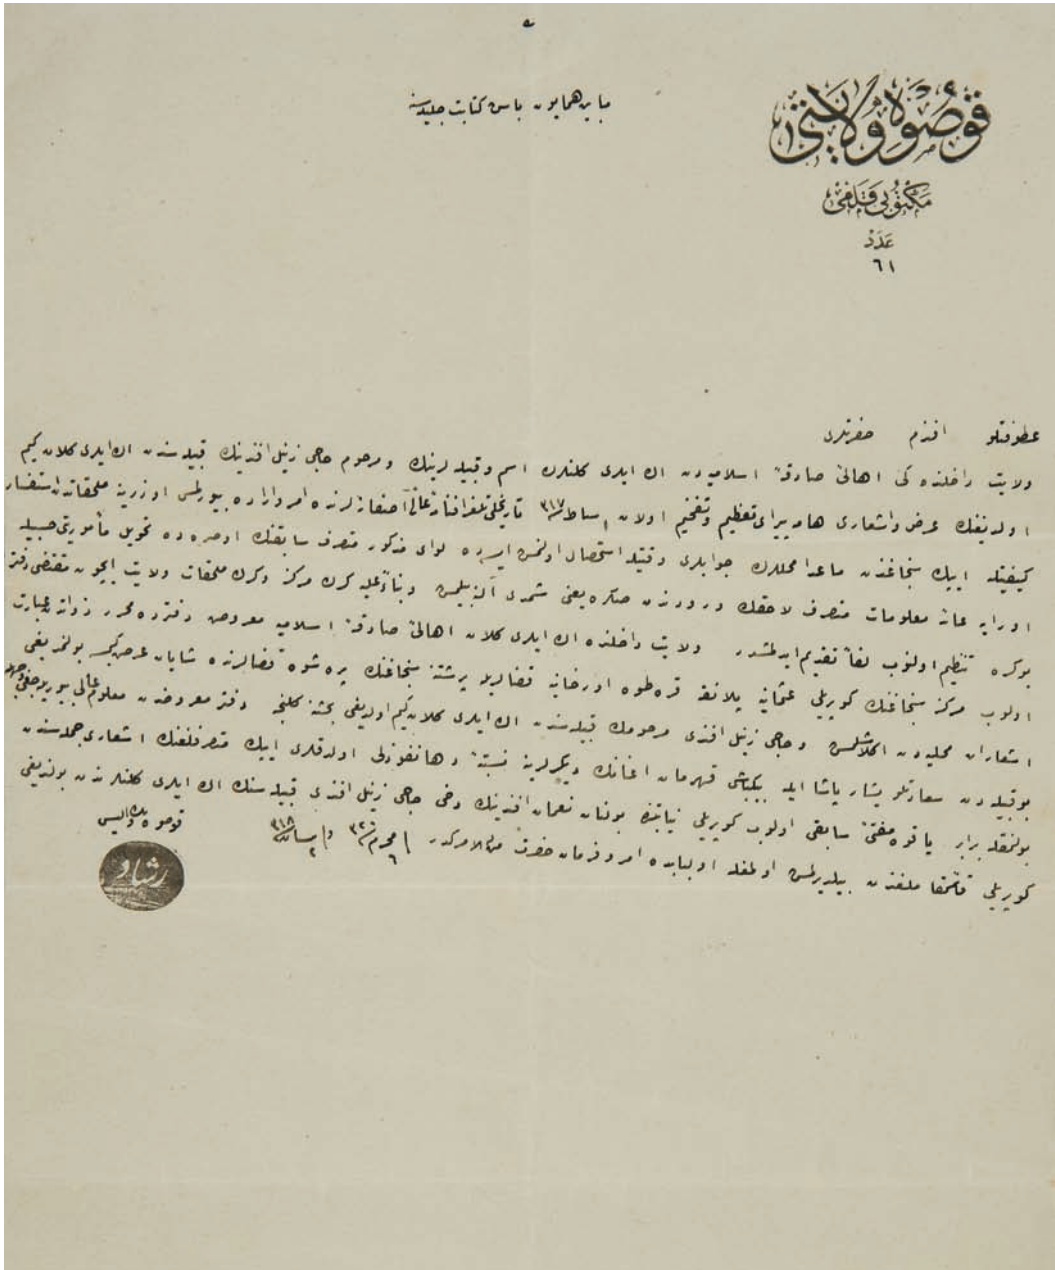 قوصوه ولايتى
مكتوبى قلمى
عدد
٦١
مابين همايون باش كتابت جليله سنه
عطوفتلو افندم حضرتلرى
ولايت داخلنده كى اهالئ صادقهٔ اسلاميه دن اك ايلرى كلنلرك اسم وقبيله لرينك ومرحوم حاجى زينل افندينك قبيله سندن اك ايلرى كلان كيم
اولديغنك عرض واشعارى هامه پيراى تعظيم وتفخيم اولان ٣١٧ تاريخلى تلغرافنامهٔ عالئ آصفانه لرنده امر واراده بيورلمش اوزرينه ملحقاتدن استفسار
كيفيتله ايپك سنجاغندن ماعدا محللرك جوابلرى وقتيله استحصال اولنمش ايسه ده لواى مذكور متصرف سابقنك اوصره ده تحويل مأموريتى حسبيله
اورايه عائد معلومات متصرف لاحقنك ورودندن صكره يعنى شمدى آلنه بيلمش وبناءً عليه كرك مركز وكرك ملحقات ولايت ايچون مقتضى دفتر
بوكره تنظيم اولنوب لفاً تقديم ايدلمشدر ولايت داخلنده اك ايلرى كلان اهالئ صادقهٔ اسلاميه معروض دفترده محرر ذواتدن عبارت
اولوب مركز سنجاغنك كوپريلى عثمانيه پلانقه قره طوه اورخانيه قضالريله پرشتنه سنجاغنك پره شوه قضالرنده شايان عرض كيمسه بولنمديغى
اشعارات محليه دن اكلاشلمش وحاجى زينل افندى مرحومك قبيله سندن اك ايلرى كلان كيم اولديغى بحثنه كلنجه دفتر معروضدن معلوم عالى بيوريله جغى وجهله
بوقبيله دن سعادتلو يشار پاشا ايله بيكباشى قهرمان اغانك ديكرلرينه نسبةً دها نفوذلى اولدقلرى ايپك متصرفلغنك اشعارى جمله سندن
بولنمقله برابر ياقوه مفتئ سابقى اولوب كوپريلى نيابتنده بولنان نعمان افندينك دخى حاجى زينل افندى قبيله سنك اك ايلرى كلنلرندن بولنديغى
كوپريلى قائمقاملغندن بيلديرلمش اولمغله اولبابده امر وفرمان حضرت من له الامركدر ٦ محرم ٣٢٠ و ٢ نيسان ٣١٨
قوصوه واليسى
رشاد